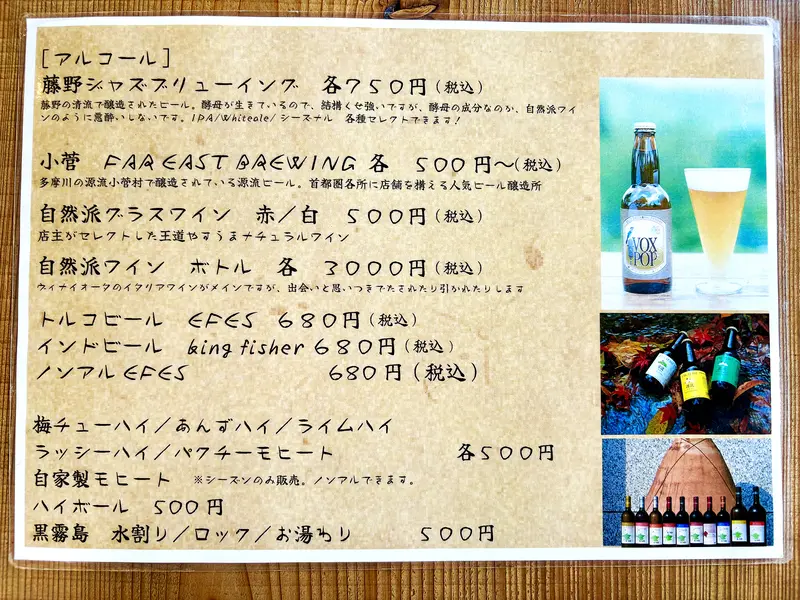 [アルコール]
藤野ジャズブリューイング 各750円(税込)
藤野の清流で醸造されたビール。酵母が生きているので、結構くせ強いですが、酵母の成分なのか、自然派ワイ
ンのように悪酔いしないです。IPA/Whiteale/シーズナル 各種セレクトできます!
小菅 FAR EAST BREWING 各 500円〜(税込)
多摩川の源流小菅村で醸造されている源流ビール。首都圏各所に店舗を構える人気ビール醸造所
自然派グラスワイン 赤/白 500円(税込)
店主がセレクトした王道やすうまナチュラルワイン
自然派ワイン ボトル 各 3000円(税込)
ヴィナイオータのイタリアワインがメインですが、出会いと思いつきでたされたり引かれたりします
トルコビール EFES 680円(税込)
インドビール king fisher 680円(税込)
ノンアルEFES 680円(税込)
梅チューハイ/あんずハイ/ライムハイ
ラッシーハイ/パクチーモヒート 各500円
自家製モヒート ※シーズンのみ販売。ノンアルできます。
ハイボール 500円
黒霧島 水割り/ロック/お湯わり 500円
VOX
POP